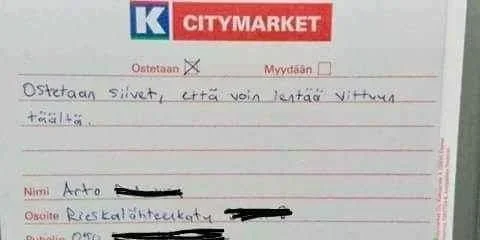 K CITYMARKET
Ostetaan Myydään
Ostetaan siivet, että voin lentää vittuun
täältä.
Nimi Arto
Osoite Rieskalähteenkatu
Puhelin 050